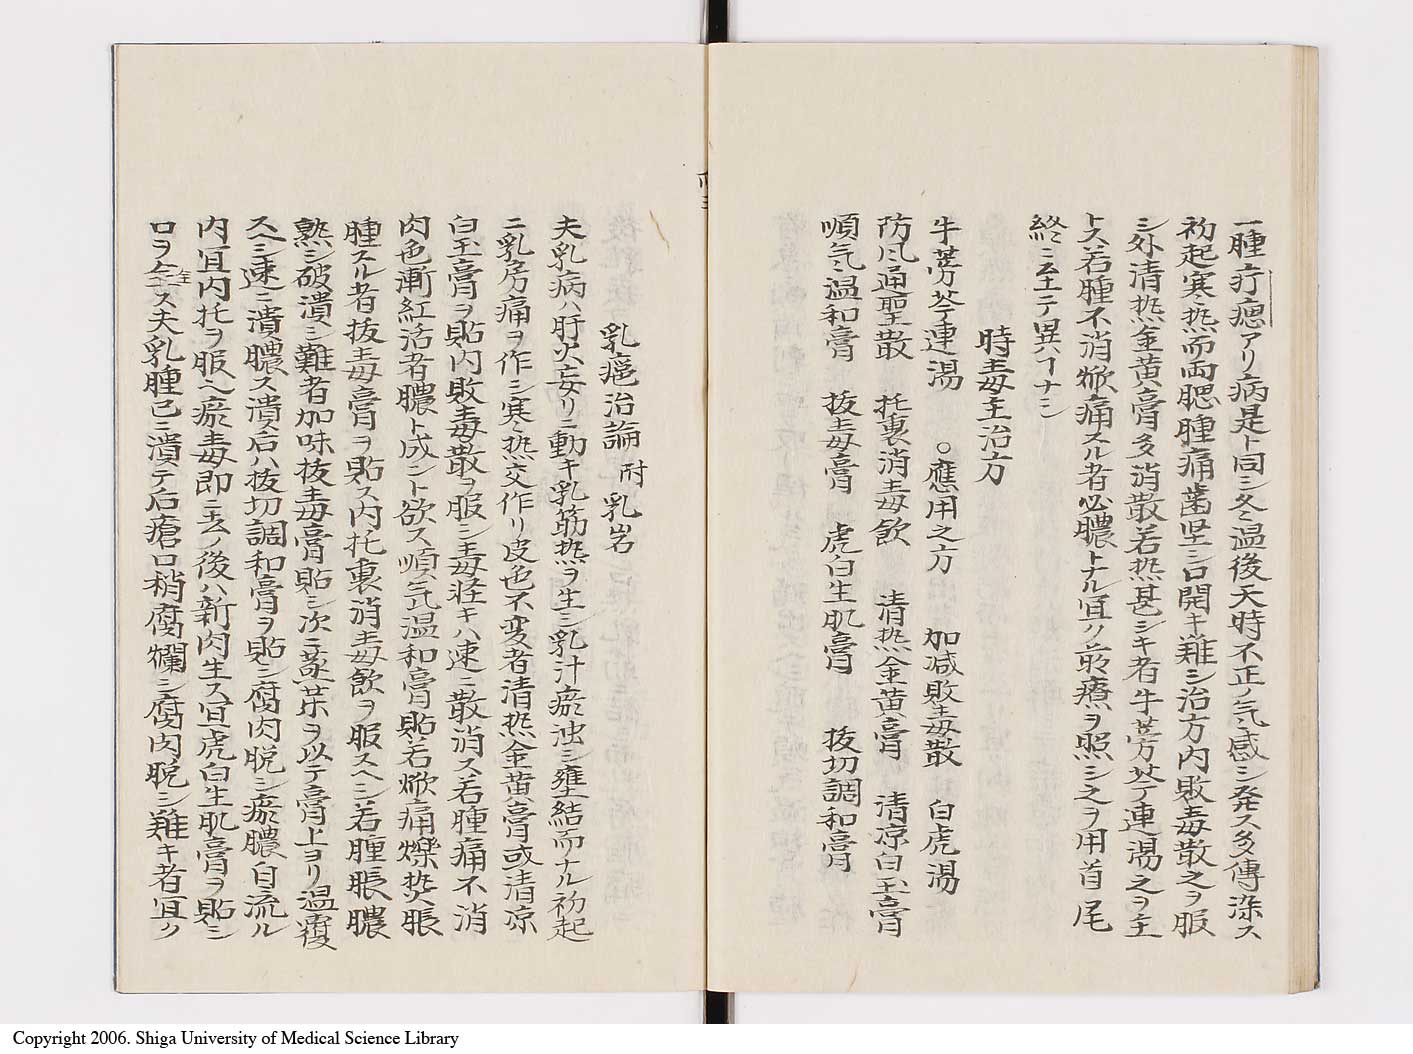 一腫疔瘜アリ病是ト同シ冬温後天時不正ノ気ニ感シ発ス多傳染ス
初起寒熱而両腮腫痛歯堅シ口開キ難シ治方内敗毒散之ヲ服
シ外清熱金黄膏多消散若熱甚シキ者牛蒡芩連湯之ヲ主
トス若腫不消焮痛スル者必膿トナル宜ノ前療ヲ照シ之ヲ用首尾
終ニ至テ異ハイナシ
時毒主治方
牛蒡芩連湯 ○應用之方 加减敗毒散 白虎湯
防風通聖散 托裏消毒飲 清熱金黄膏 清凉白玉膏
順気温和膏 抜毒膏 虎白生肌膏 抜切調和膏
乳癰治論 附乳岩
夫乳病ハ肝火妄リニ動キ乳筋熱ヲ生シ乳汁瘀浊シ壅結而ナル初起
ニ乳房痛ヲ作シ寒熱交作リ皮色不変者清熱金黄膏或清凉
白玉膏ヲ貼内敗毒散ヲ服シ毒軽キハ速ニ散消ス若腫痛不消
肉色漸紅活者膿ト成ント欲ス順気温和膏貼若焮痛爍熱脹
腫スル者抜毒膏ヲ貼ス内托裏消毒飲ヲ服スヘシ若腫脹膿
熟シ破潰シ難者加味抜毒膏貼シ次ニ蒸茶ヲ以テ膏上ヨリ温覆
スヘシ速ニ潰膿ス潰ス后ハ抜切調和膏ヲ貼シ腐肉脱シ瘀膿自流ル
内宜内托ヲ服之瘀毒即ニ去ノ後ハ新肉生ス宜虎白生肌膏ヲ貼シ
口ヲ全ス夫乳腫已ニ潰テ后瘡口稍腐爛シ腐肉脱シ難キ者宜ク
Copyright 2006. Shiga University of Medical Science Library